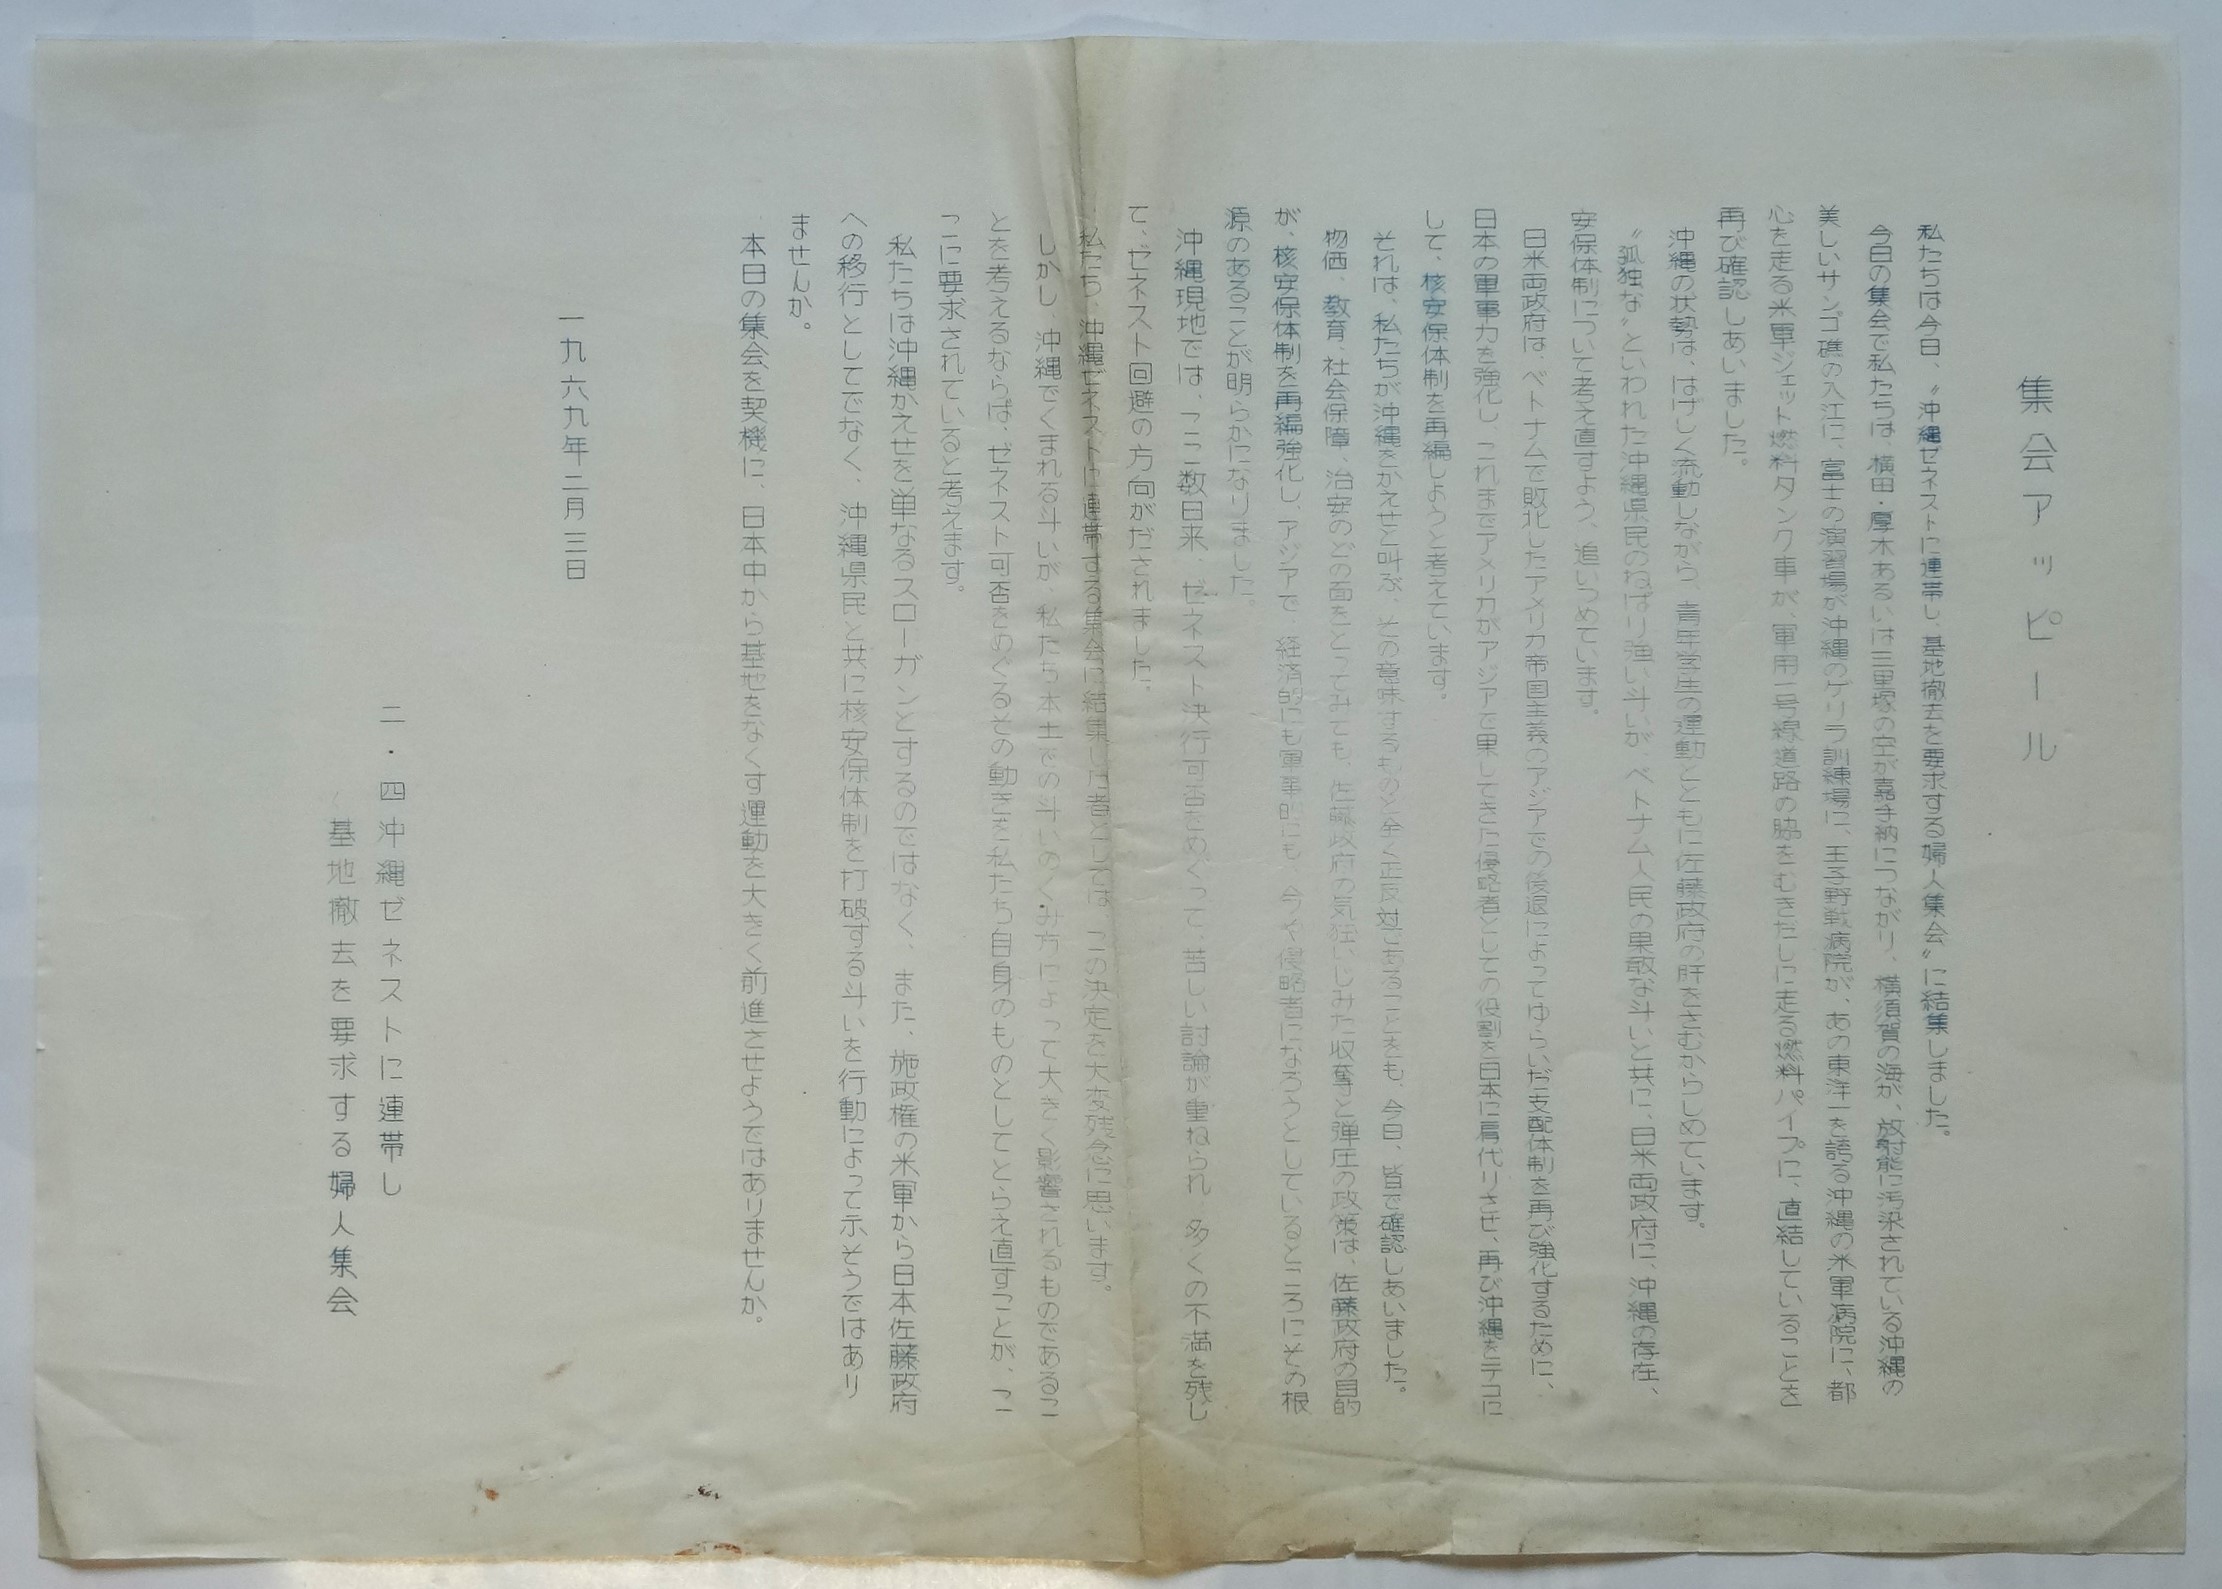 集会アッピール
私たちは今日、〝沖縄ゼネストに連帯し、基地撤去を要求する婦人集会〟に結集しました。
今日の集会で私たちは、横田・厚木あるいは三里塚の空が嘉手納につながり、横須賀の海が、放射能に汚染されている沖縄の
美しいサンゴ礁の入江に、富士の演習場が沖縄のゲリラ訓練場に、王子野戦病院が、あの東洋一を誇る沖縄の米軍病院に、都
心を走る米軍ジェット燃料タンク車が、軍用一号線道路の脇をむきだしに走る燃料パイプに、直結していることを
再び確認しあいました。
沖縄の状勢は、はげしく流動しながら、青年学生の運動とともに佐藤政府の肝をさむからしめています。
〝孤独な〟といわれた沖縄県民のねばり強い斗いが、ベトナム人民の果敢な斗いと共に、日米両政府に、沖縄の存在、
安保体制について考え直すよう、追いつめています。
日米両政府は、ベトナムで敗北したアメリカ帝国主義のアジアでの後退によってゆらいだ支配体制を再び強化するために、
日本の軍事力を強化し、これまでアメリカがアジアで果してきた侵略者としての役割を日本に肩代りさせ、再び沖縄をテコに
して、核安保体制を再編しようと考えています。
それは、私たちが沖縄をかえせと叫ぶ、その意味するものと全く正反対であることをも、今日、皆で確認しあいました。
物価、教育、社会保障、治安のどの面をとってみても、佐藤政府の気狂いじみた収奪と弾圧の政策は、佐藤政府の目的
が、核安保体制を再編強化し、アジアで、経済的にも軍事的にも、今や侵略者になろうとしているところにその根
源のあることが明らかになりました。
沖縄現地では、ここ数日来、ゼネスト決行可否をめぐって、苦しい討論が重ねられ、多くの不満を残し
て、ゼネスト回避の方向がだされました。
私たち、沖縄ゼネストに連帯する集会に結集した者としては、この決定を大変残念に思います。
しかし、沖縄でくまれる斗いが、私たち本土での斗いのくみ方によって大きく影響されるものであるこ
とを考えるならば、ゼネスト可否をめぐるその動きを私たち自身のものとしてとらえ直すことが、こ
こに要求されていると考えます。
私たちは沖縄かえせを単なるスローガンとするのではなく、また、施政権の米軍から日本佐藤政府
への移行としてでなく、沖縄県民と共に核安保体制を打破する斗いを行動によって示そうではあり
ませんか。
本日の集会を契機に、日本中から基地をなくす運動を大きく前進させようではありませんか。
一九六九年二月三日
二・四沖縄ゼネストに連帯し
基地撤去を要求する婦人集会